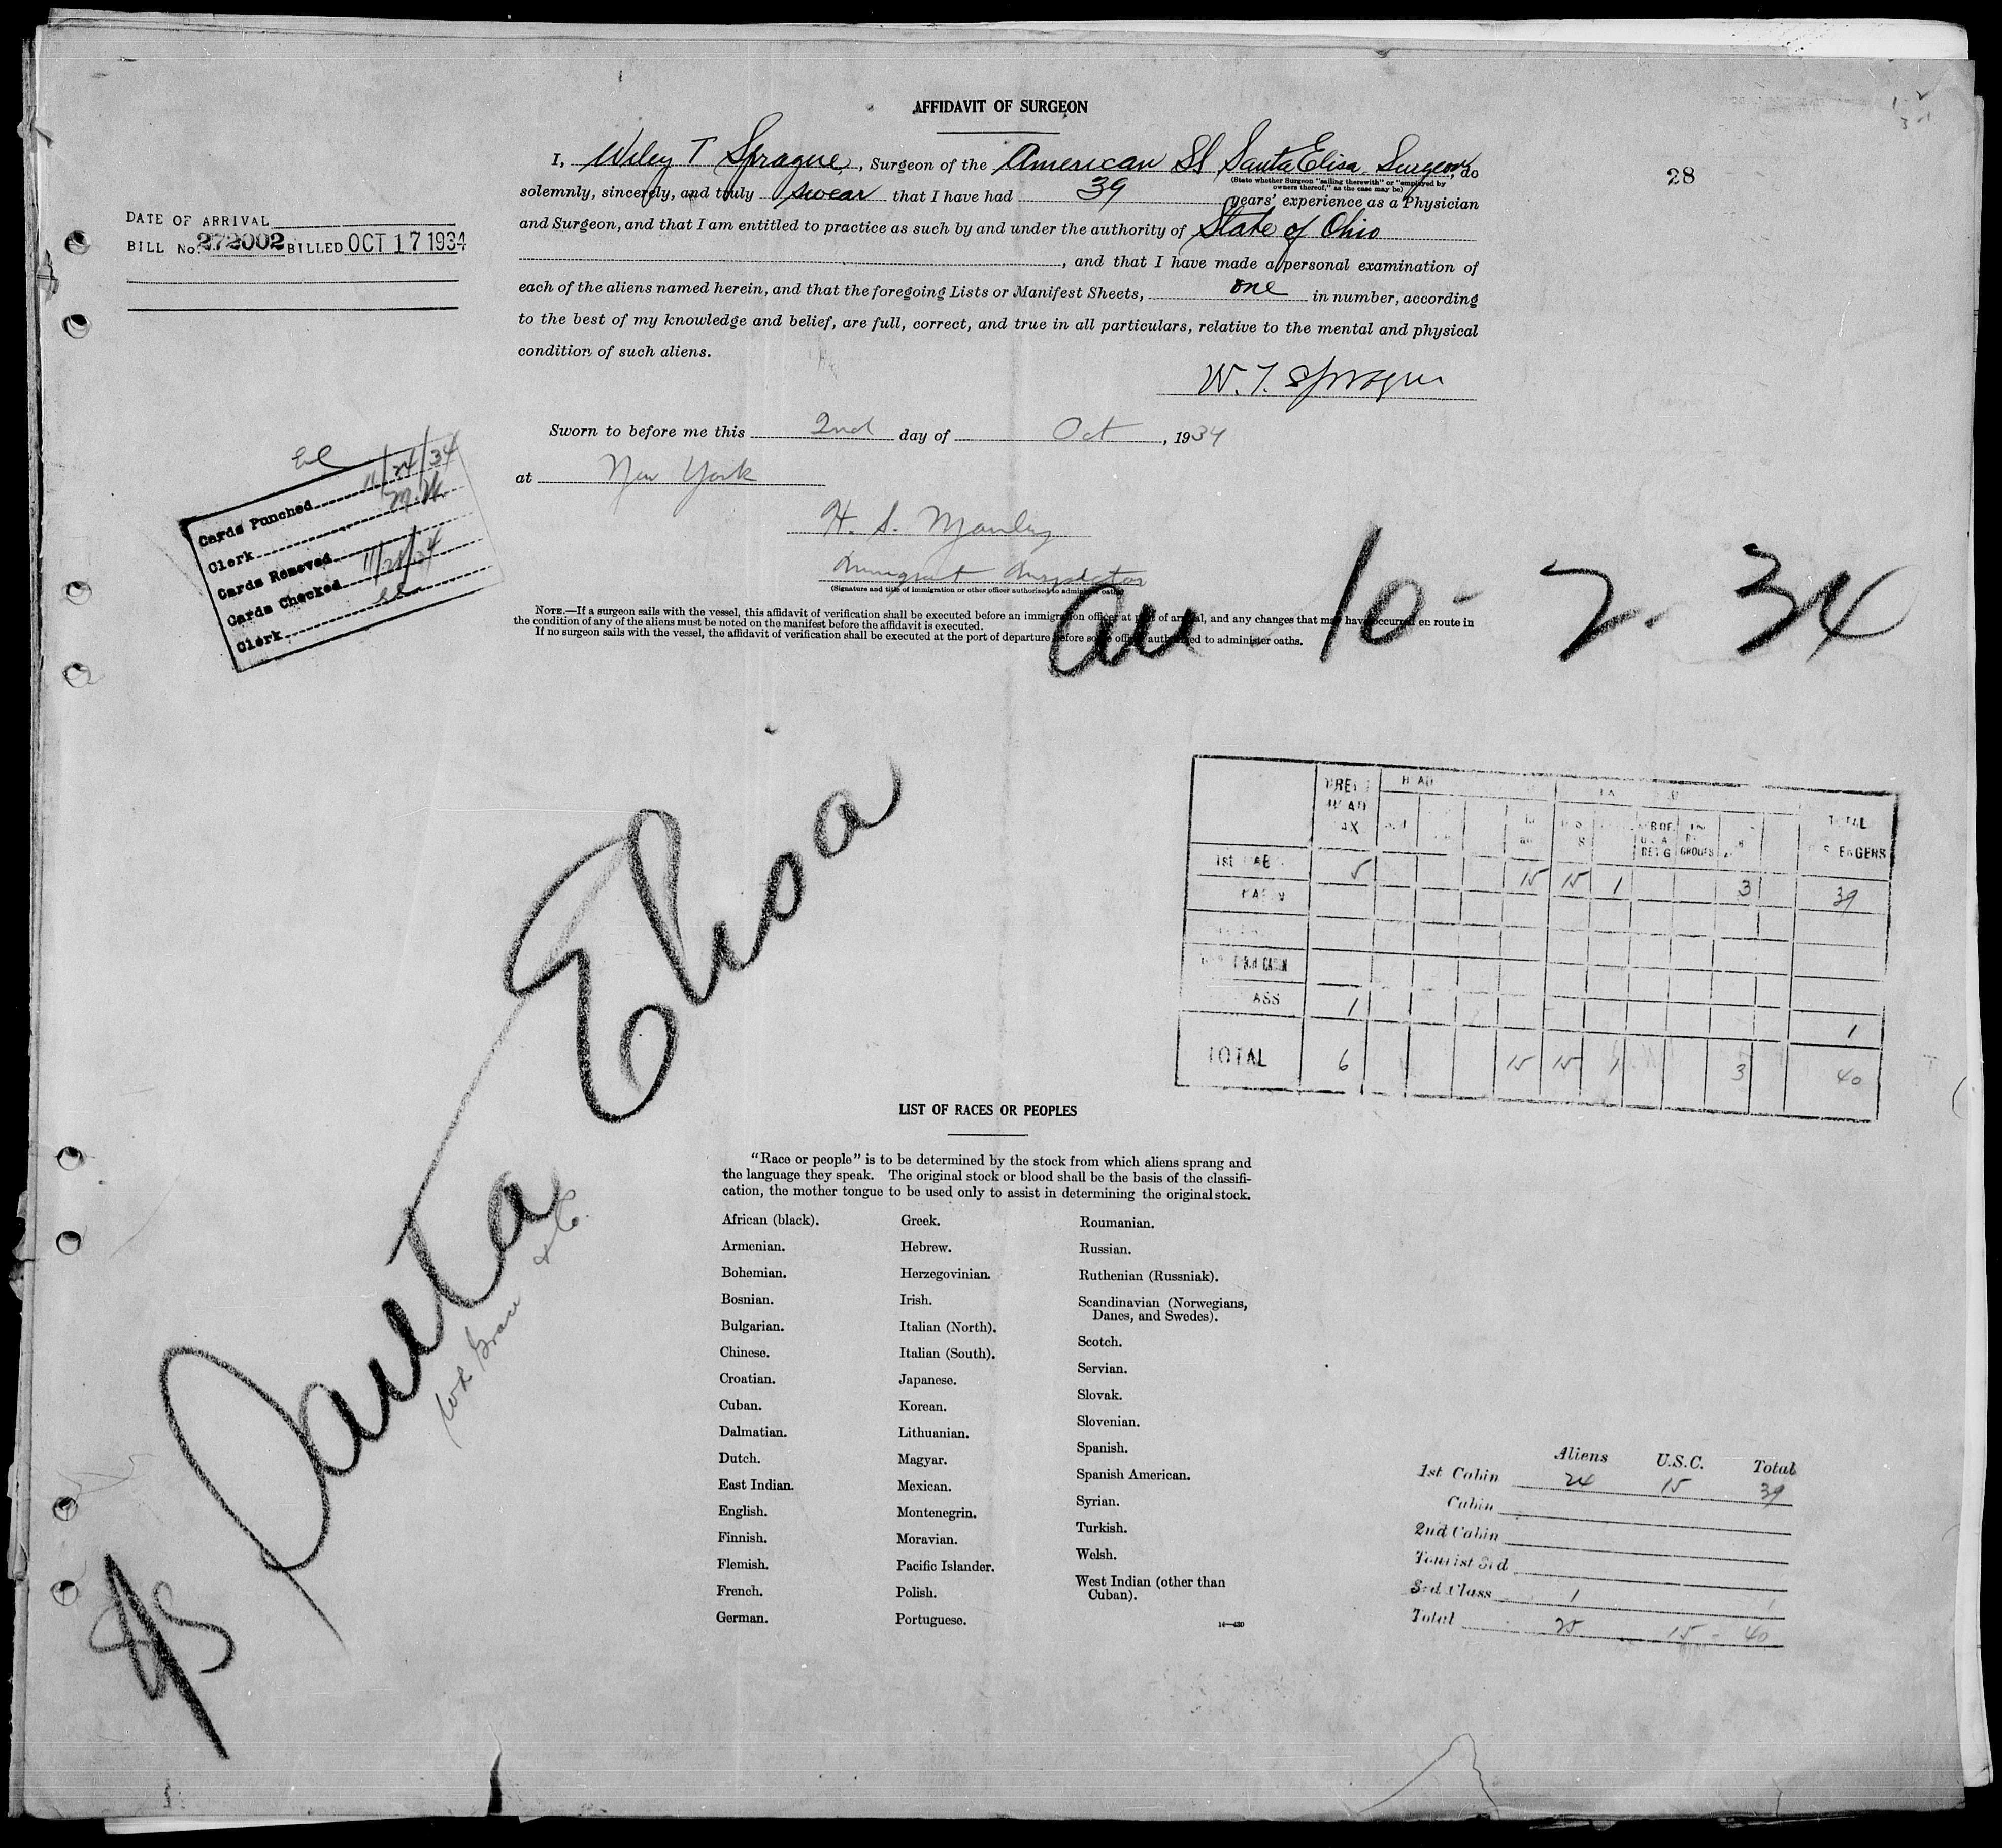 AFFIDAVIT OF SURGEON
28
I, Wiley T Sprague, Surgeon of the American SS Santa Elisa, Surgeon, do
(State whether Surgeon "sailing therewith" or "employed by owners thereof," as the case may be)
solemnly, sincerely, and truly swear that I have had 39 years' experience as a Physician
and Surgeon, and that I am entitled to practice as such by and under the authority of State of Ohio
, and that I have made a personal examination of
each of the aliens named herein, and that the foregoing Lists or Manifest Sheets, one in number, according
to the best of my knowledge and belief, are full, correct, and true in all particulars, relative to the mental and physical
condition of such aliens.
W. T. Sprague
Sworn to before me this 2nd day of Oct, 1934
at New York
H. S. Manley
Immigrant Inspector
(Signature and title of immigration or other officer authorized to administer oaths)
NOTE.—If a surgeon sails with the vessel, this affidavit of verification shall be executed before an immigration officer at port of arrival, and any changes that may have occurred en route in
the condition of any of the aliens must be noted on the manifest before the affidavit is executed.
If no surgeon sails with the vessel, the affidavit of verification shall be executed at the port of departure before some officer authorized to administer oaths.
DATE OF ARRIVAL
BILL No. 272002 BILLED OCT 17 1934
Cards Punched 11/24/34
Clerk
Cards Removed
Cards Checked
Clerk
10-2-34
Santa Elisa
WR Grace & Co.
HEAD
TOTAL
GROUPS
1st CAB 5 15 15 1 3 39
1 1
TOTAL 6 15 15 1 3 40
LIST OF RACES OR PEOPLES
"Race or people" is to be determined by the stock from which aliens sprang and
the language they speak. The original stock or blood shall be the basis of the classifi-
cation, the mother tongue to be used only to assist in determining the original stock.
African (black).
Armenian.
Bohemian.
Bosnian.
Bulgarian.
Chinese.
Croatian.
Cuban.
Dalmatian.
Dutch.
East Indian.
English.
Finnish.
Flemish.
French.
German.
Greek.
Hebrew.
Herzegovinian.
Irish.
Italian (North).
Italian (South).
Japanese.
Korean.
Lithuanian.
Magyar.
Mexican.
Montenegrin.
Moravian.
Pacific Islander.
Polish.
Portuguese.
Roumanian.
Russian.
Ruthenian (Russniak).
Scandinavian (Norwegians,
Danes, and Swedes).
Scotch.
Servian.
Slovak.
Slovenian.
Spanish.
Spanish American.
Syrian.
Turkish.
Welsh.
West Indian (other than
Cuban).
14—430
Aliens U.S.C. Total
1st Cabin 24 15 39
Cabin
2nd Cabin
Tourist 3rd
3rd Class 1 1
Total 25 15 - 40